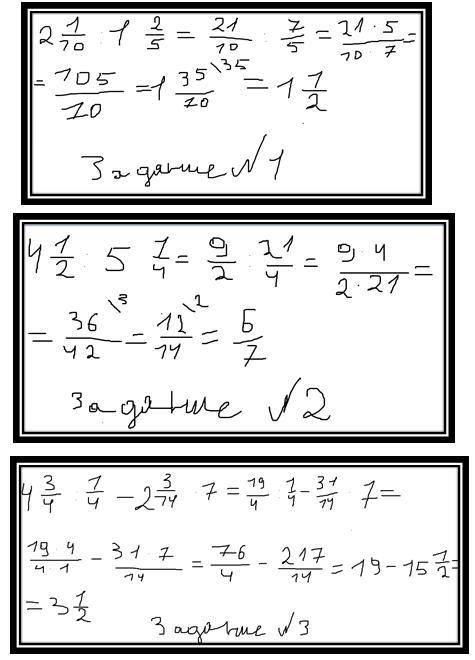 2 1/10 : 1 2/5 = 21/10 : 7/5 = 21·5/10·7 =
= 105/70 = 1 35/70 \35 = 1 1/2
Задание №1
4 1/2 : 5 1/4 = 9/2 : 21/4 = 9·4/2·21 =
= 36/42 \3 = 12/14 \2 = 6/7
Задание №2
4 3/4 : 1/4 - 2 3/14 · 7 = 19/4 : 1/4 - 31/14 · 7 =
19·4/4·1 - 31·7/14 = 76/4 - 217/14 = 19 - 15 1/2 =
= 3 1/2
Задание №3